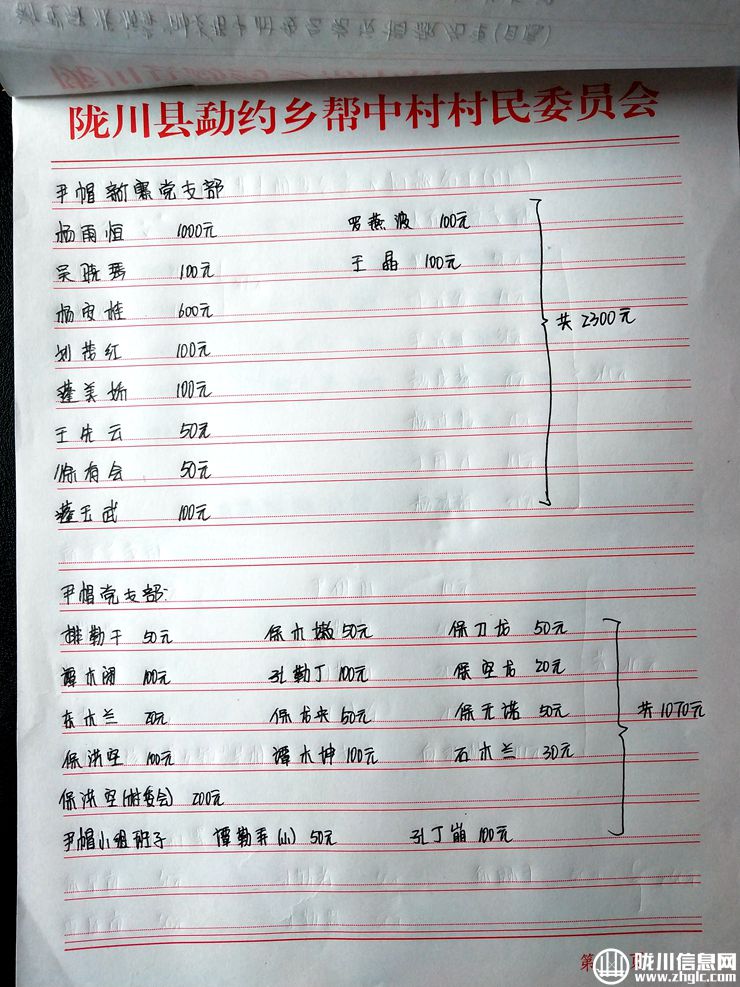 陇川县勐约乡帮中村村民委员会
尹帽新寨党支部
杨雨恒 1000元 罗燕波 100元
吴晓琴 100元 王晶 100元
杨安桂 600元
共2300元
刘茂红 100元
美娇 100元
王先云 50元
徐有会 50元
玉武 100元
尹帽党支部:
排勒干 50元 保木墩 50元 保刀龙 50元
谭木湘 100元 孔勒丁 100元 保坚龙 20元
木兰 20元 保龙央 50元 保尤诺 50元
共1070元
保洪坚 100元 谭木坤 100元 石木兰 30元
保洪坚(村委会) 200元
尹帽小组班子 谭勒弄(小) 50元 孔丁崩 100元
第 页
陇川信息网
www.zhglc.com